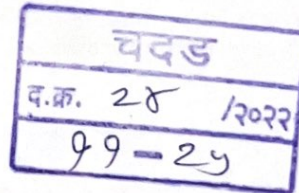 चदड
द.क्र. २४ /२०२२
११ - २५